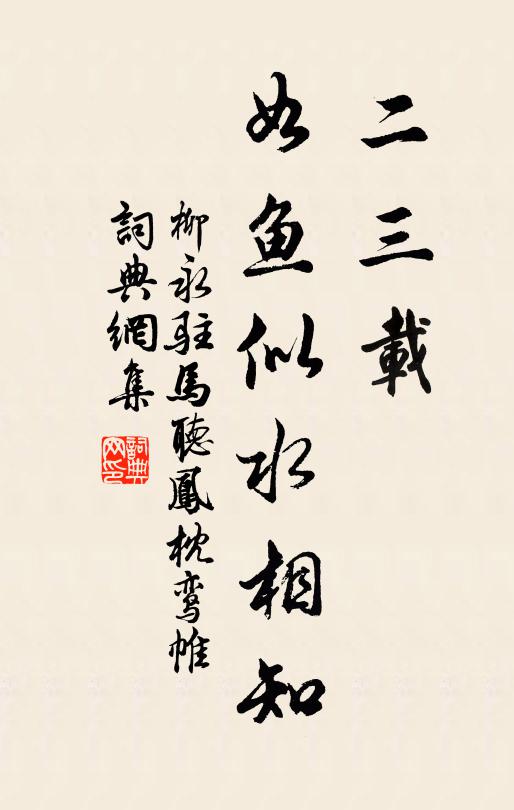 二三載
如鱼似水相知
柳永駐馬聽鳳枕鸾帷
詞典網集
詞典
网印